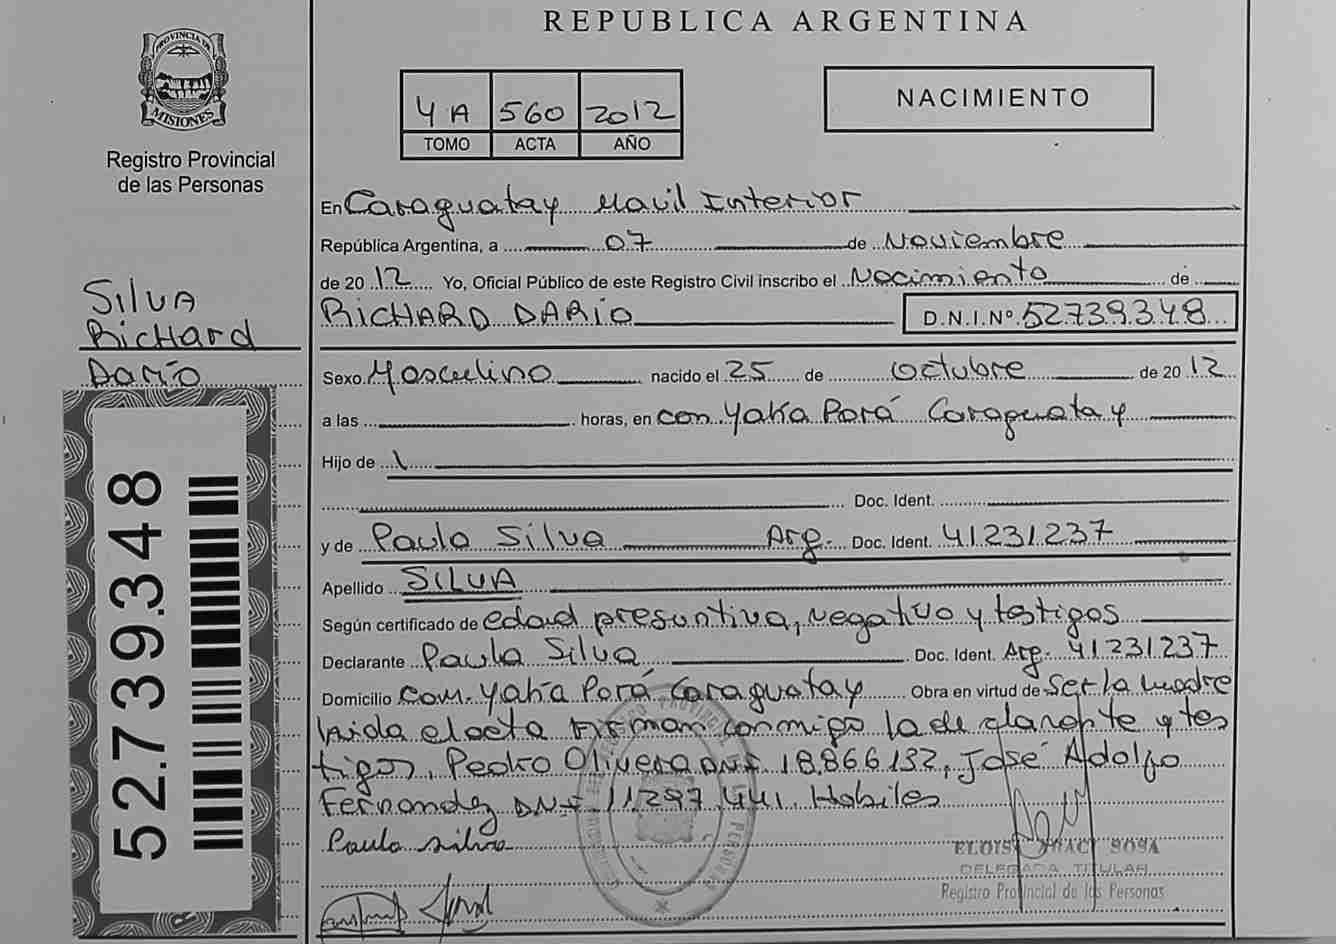 REPUBLICA ARGENTINA
PROVINCIA DE
MISIONES
Registro Provincial
de las Personas
4A 560 2012
TOMO ACTA AÑO
NACIMIENTO
En Caraguatay Movil Interior
República Argentina, a 07 de Noviembre
de 2012 Yo, Oficial Público de este Registro Civil inscribo el Nacimiento de
RICHARD DARIO D.N.I.Nº 52.739.348
Silva
Richard
Darío
Sexo Masculino nacido el 25 de octubre de 2012
a las horas, en com. Yaka Porá Caraguatay
Hijo de
Doc. Ident.
y de Paula Silva Arg. Doc. Ident. 41.231.237
Apellido SILVA
Según certificado de edad presuntiva, negativo y testigos
Declarante Paula Silva Doc. Ident. Arg. 41.231.237
Domicilio com. Yaka Porá Caraguatay Obra en virtud de Ser la madre
leida el acta Firman conmigo la declarante y tes
tigos, Pedro Olivera DNI 18.866.132, José Adolfo
Fernandez DNI 11.297.441. Habiles
Paula Silva
SOSA
DELEGADA TITULAR
Registro Provincial de las Personas
52.739.348